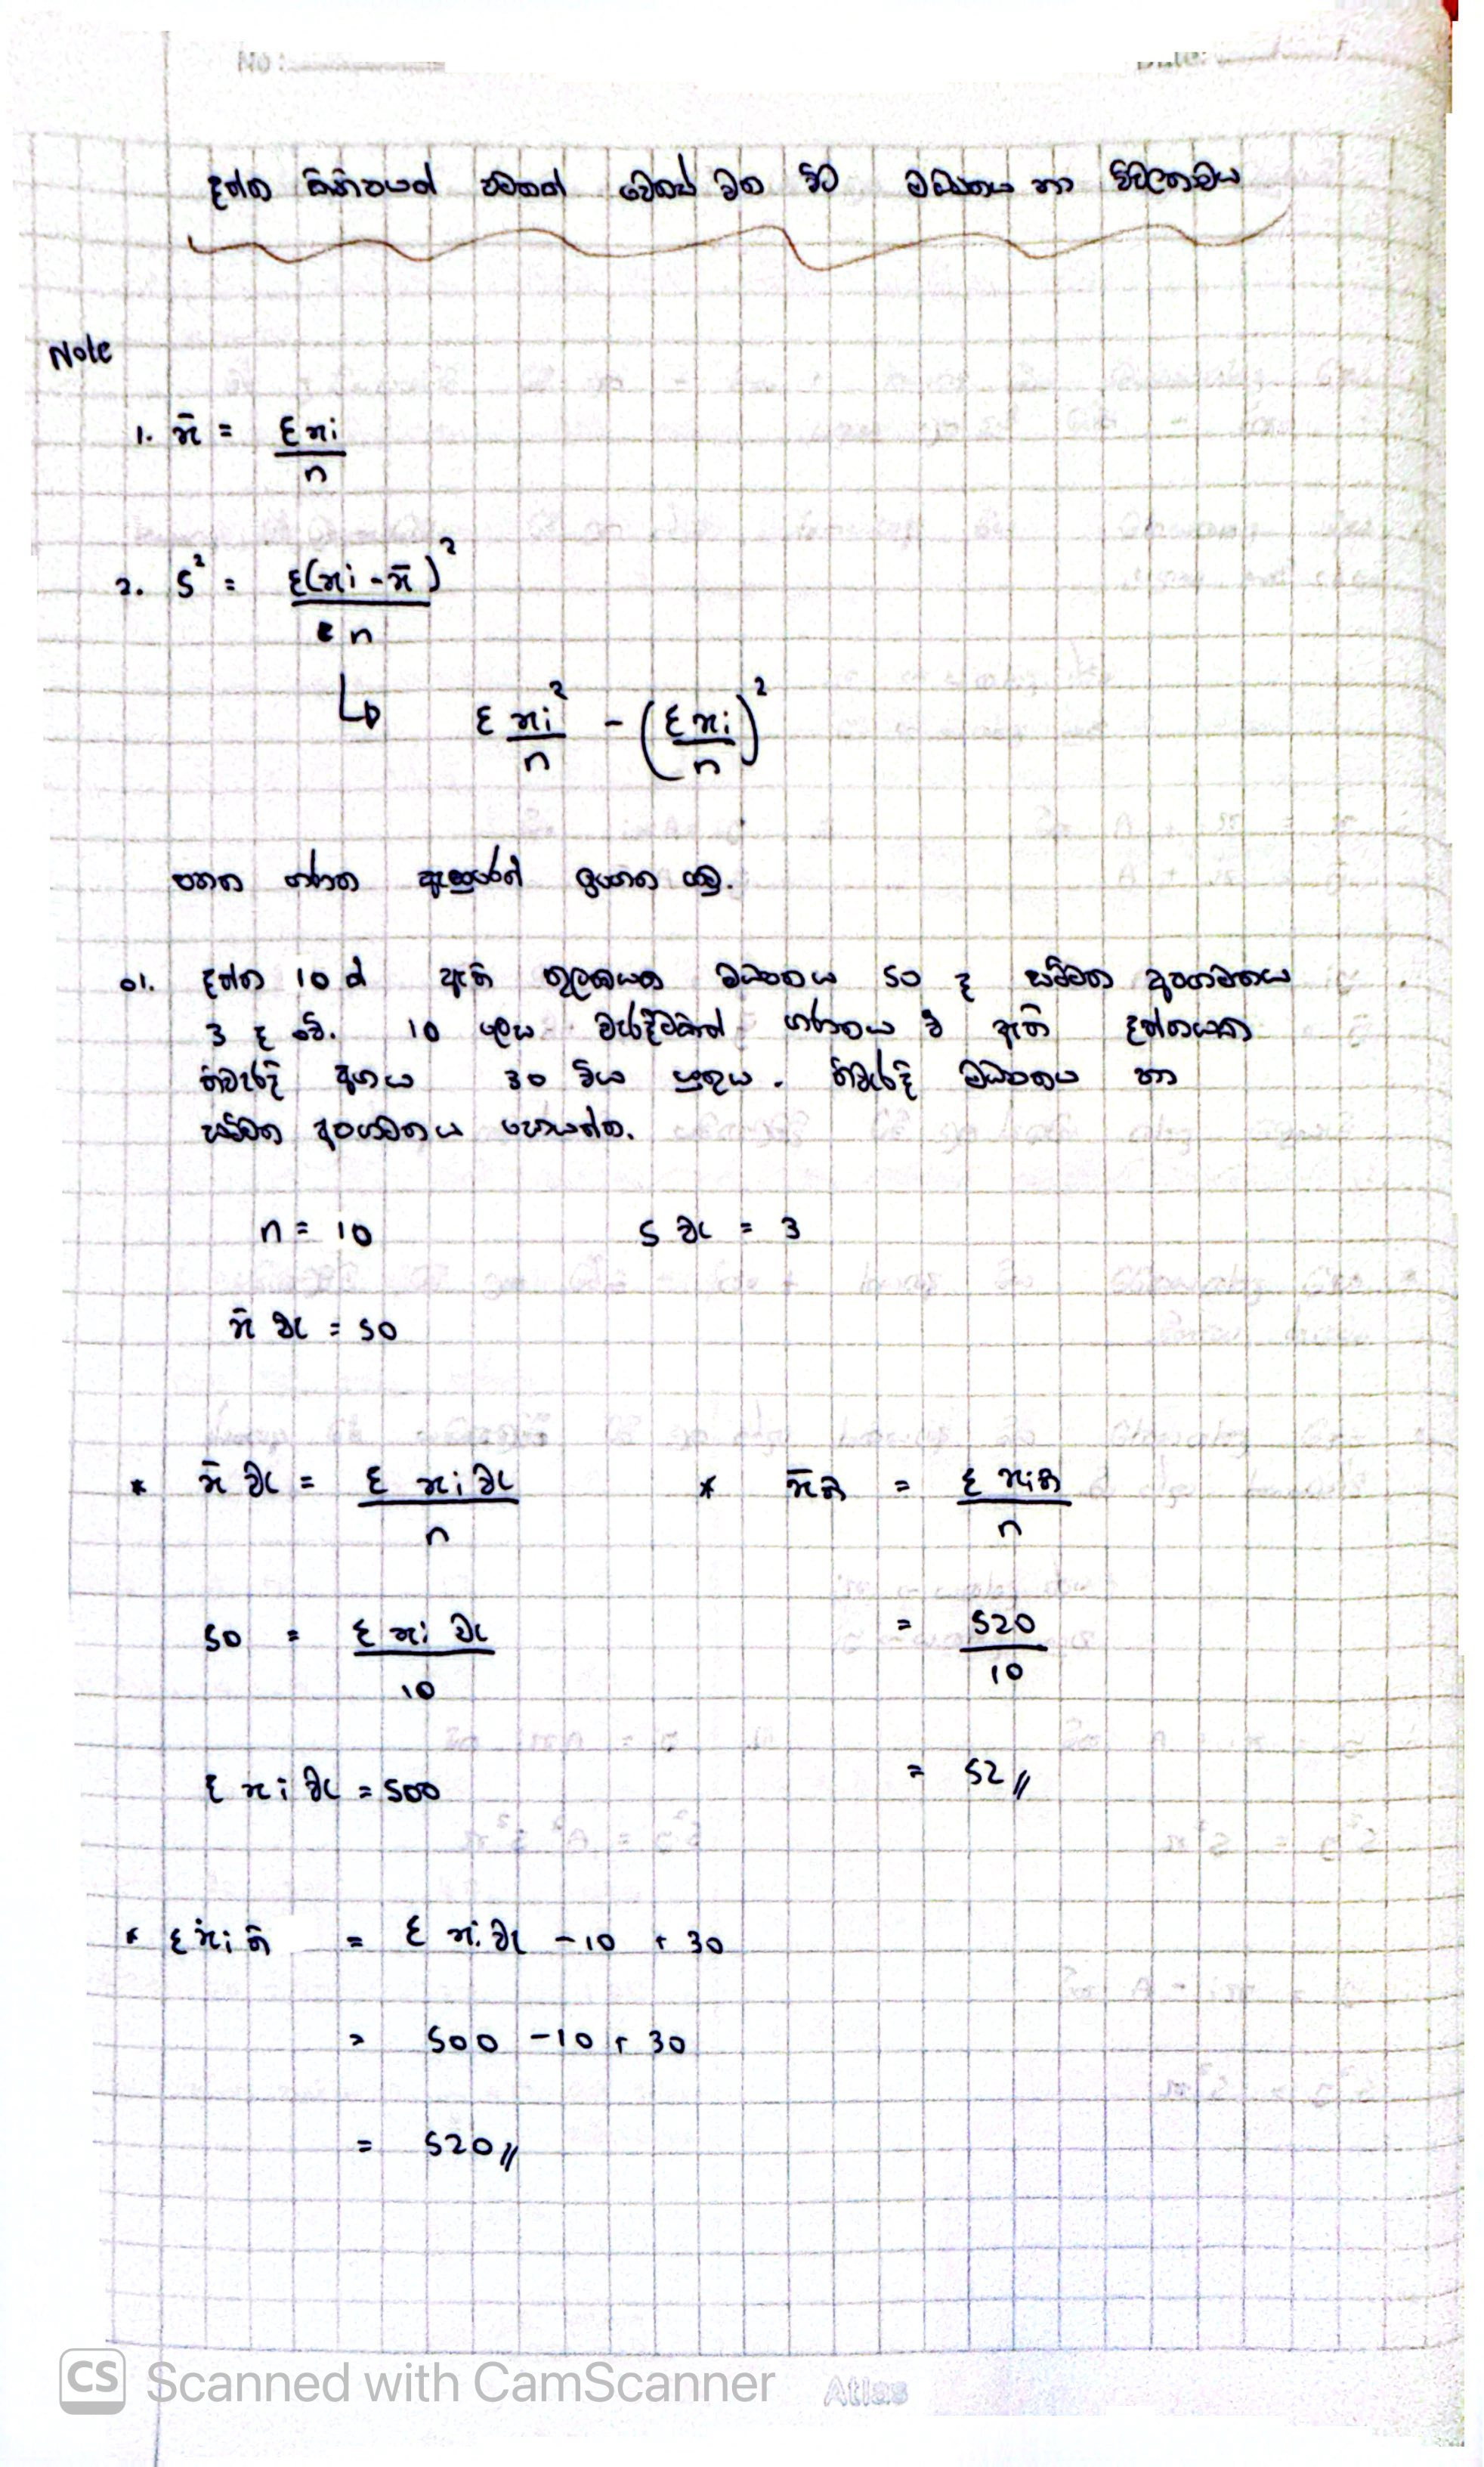 No :
Date:
දත්ත කිහිපයක් පමණක් වෙනස් වන විට මධ්‍යන්‍යය හා විචලතාවය
Note
1. x̄ = Σxi / n
2. S² = Σ(xi - x̄)² / n
↳ Σ xi² / n - (Σxi / n)²
පහත ගැටළු ඇසුරෙන් ඉගෙන ගමු.
01. දත්ත 10 ක් ඇති කුලකයක මධ්‍යන්‍යය 50 ද සම්මත අපගමනය
3 ද වේ. 10 ලෙස වැරදීමකින් ගණනය වී ඇති දත්තයක
නිවැරදි අගය 30 විය යුතුය. නිවැරදි මධ්‍යන්‍යය හා
සම්මත අපගමනය සොයන්න.
n = 10 S වැ = 3
x̄ වැ = 50
* x̄ වැ = Σ xi වැ / n * x̄ නි = Σ xi නි / n
50 = Σ xi වැ / 10 = 520 / 10
Σ xi වැ = 500 = 52 //
* Σxi නි = Σ xi වැ - 10 + 30
= 500 - 10 + 30
= 520 //
CS Scanned with CamScanner Atlas